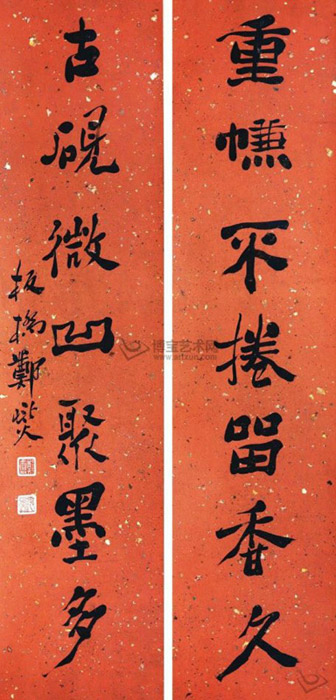 重㡘不捲留香久
古硯微凹聚墨多
板橋鄭燮
博宝艺术网
www.artxun.com